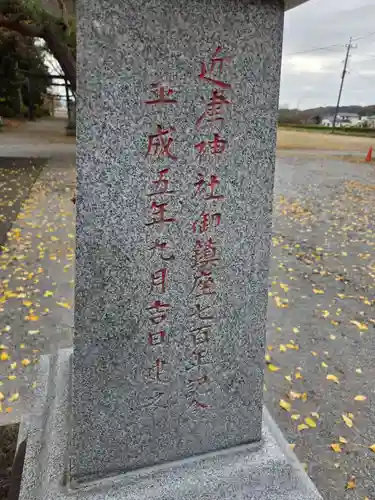 近津神社御鎮座七百年記念
平成五年九月吉日建之